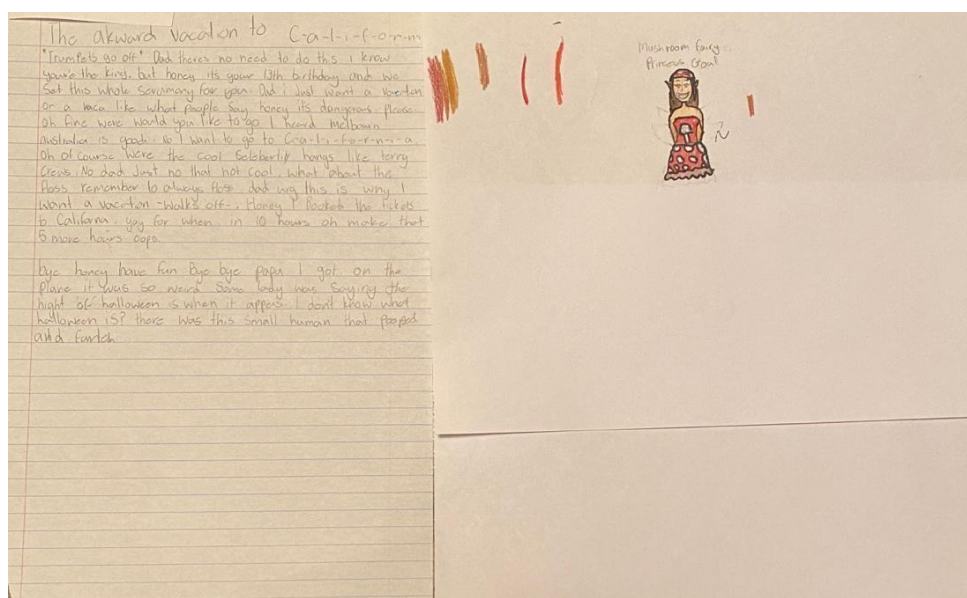 The akward vacation to C-a-l-i-f-o-r-n
"Trumpets go off" Dad theres no need to do this I know
your the king, but honey its your 13th birthday and we
set this whole for you. Dad i Just want a
or a vaca like what people say honey its dangerous. please
oh fine were would you like to go I heard
australia is good. no I want to go to C-a-l-i-f-o-r-n-i-a
Oh of course were the cool hangs like terry
Crews. No dad Just no that not cool, what about the
floss remember to always floss. dad this is why I
want a -Walks off-. Honey I the tickets
to . yay for when in 10 hours oh make that
5 more hours oops.
bye honey have fun Bye bye papa I got on the
plane it was so weird some lady was saying the
night of halloween is when it I don't know what
halloween is? there was this small human that pooped
and
Mushroom fairy